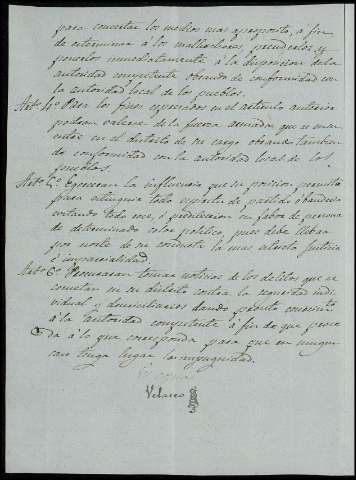 para concertar los medios mas aproposito, a fin
de esterminar á los malhechores, prenderlos, y
ponerlos inmediatamente á la disposicion de la
autoridad competente obrando de conformidad con
la autoridad local de los pueblos.
Art.º 4º Para los fines espresados en el articulo anterior
podran valerse de la fuerza armada que se encuentre
en el distrito de su cargo obrando tambien
de conformidad con la autoridad local de los
pueblos.
Art.º 5º Ejerceran la influencia que su posicion permita
para estinguir todo espiritu de partido o banderia
evitando todo ece, o predileccion en fabor de persona
de determinado color politico, pues debe llebar
por norte de su conducta la mas estricta justicia
é imparcialidad.
Art.º 6º Procuraran tomar noticias de los delitos que se
cometan en su distrito contra la seguridad indi
vidual y domiciliarios dando pronto conocim.to
á la autoridad competente á fin de que proce
da á lo que corresponda para que en ningun
caso tenga lugar la impugnidad.
Velasco